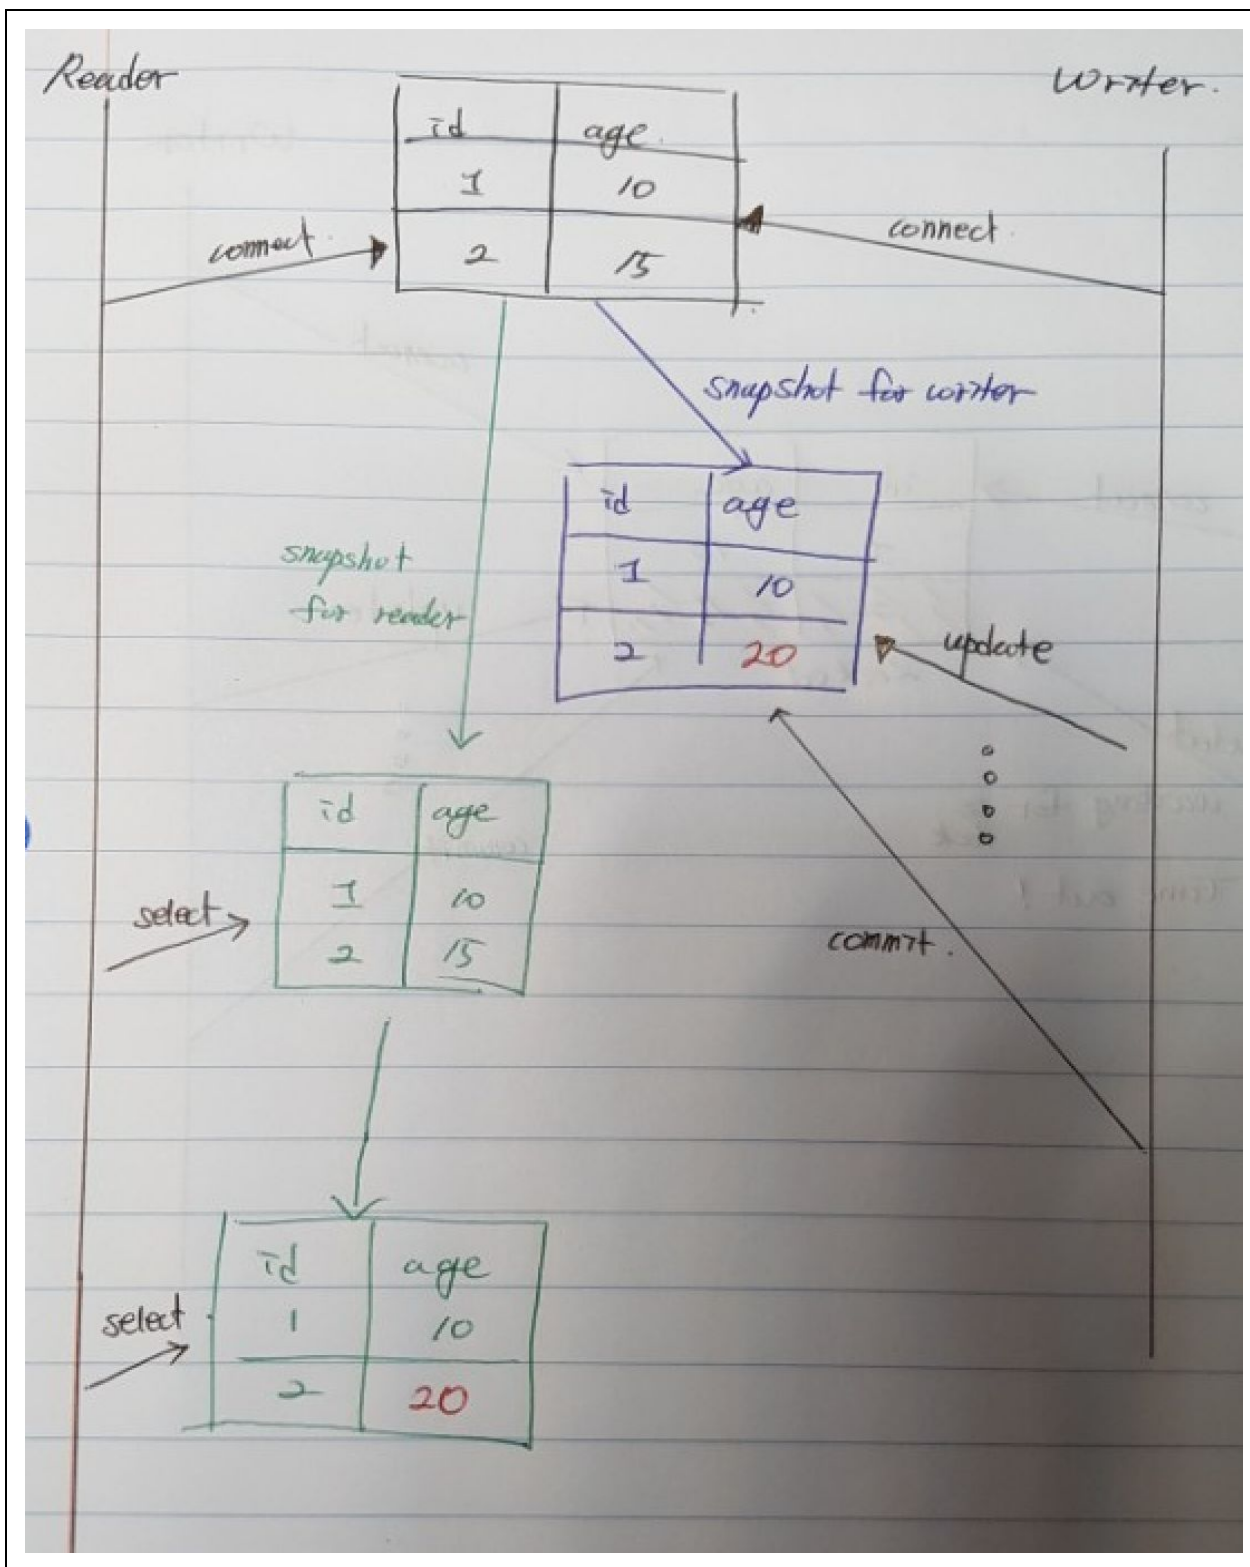 Reader
Writer.
id age.
1 10
2 15
connect.
connect.
snapshot for writer
id age
1 10
2 20
snapshot
for reader
update
id age
1 10
2 15
select
commit.
id age
1 10
2 20
select